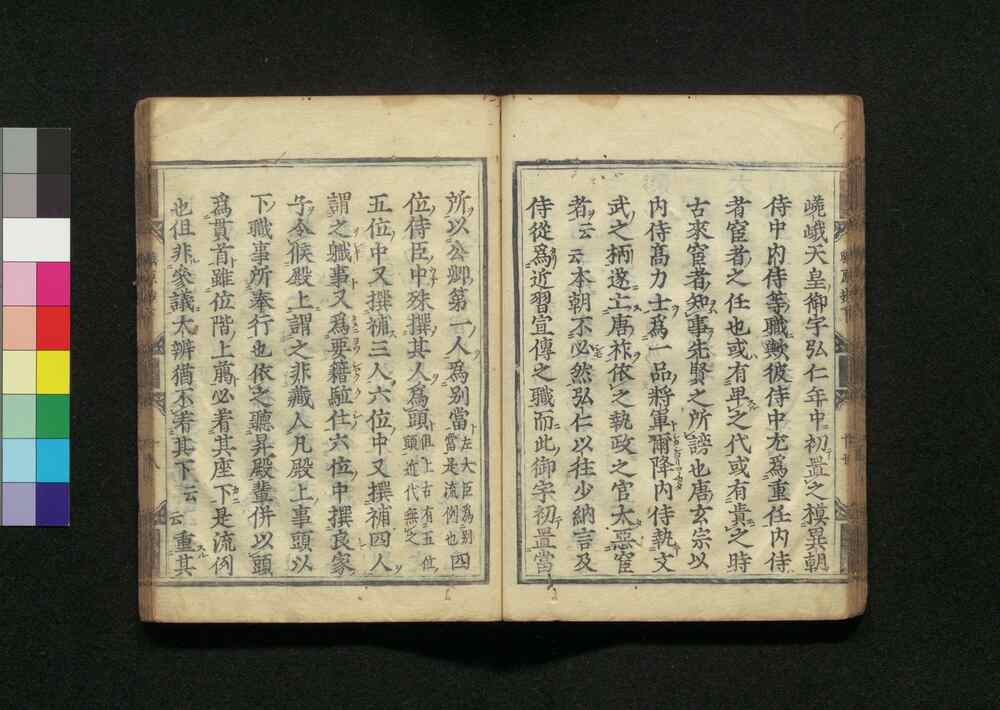 嵯峨天皇御宇弘仁年中初置之模異朝
侍中内侍等職歟彼侍中尤爲重任内侍
者宦者之任也或有卑之代或有貴之時
古來宦者知事先賢之所謗也唐玄宗以
内侍髙力士爲一品將軍爾降内侍執文
武之柄遂亡唐祚依之執政之官太惡宦
者云云本朝不必然弘仁以往少納言及
侍從爲近習宣傳之職而此御宇初置當
所以公卿第一人爲別當左大臣爲別當是流例也四
位侍臣中殊撰其人爲頭但上古有五位頭近代無之
五位中又撰補三人六位中又撰補四人
謂之職事又爲要籍駈仕六位中撰良家
子令候殿上謂之非藏人凡殿上事頭以
下職事所奉行也依之聽昇殿輩併以頭
爲貫首雖位階上﨟必着其座下是流例
也但非參議大辨猶不着其下云云重其